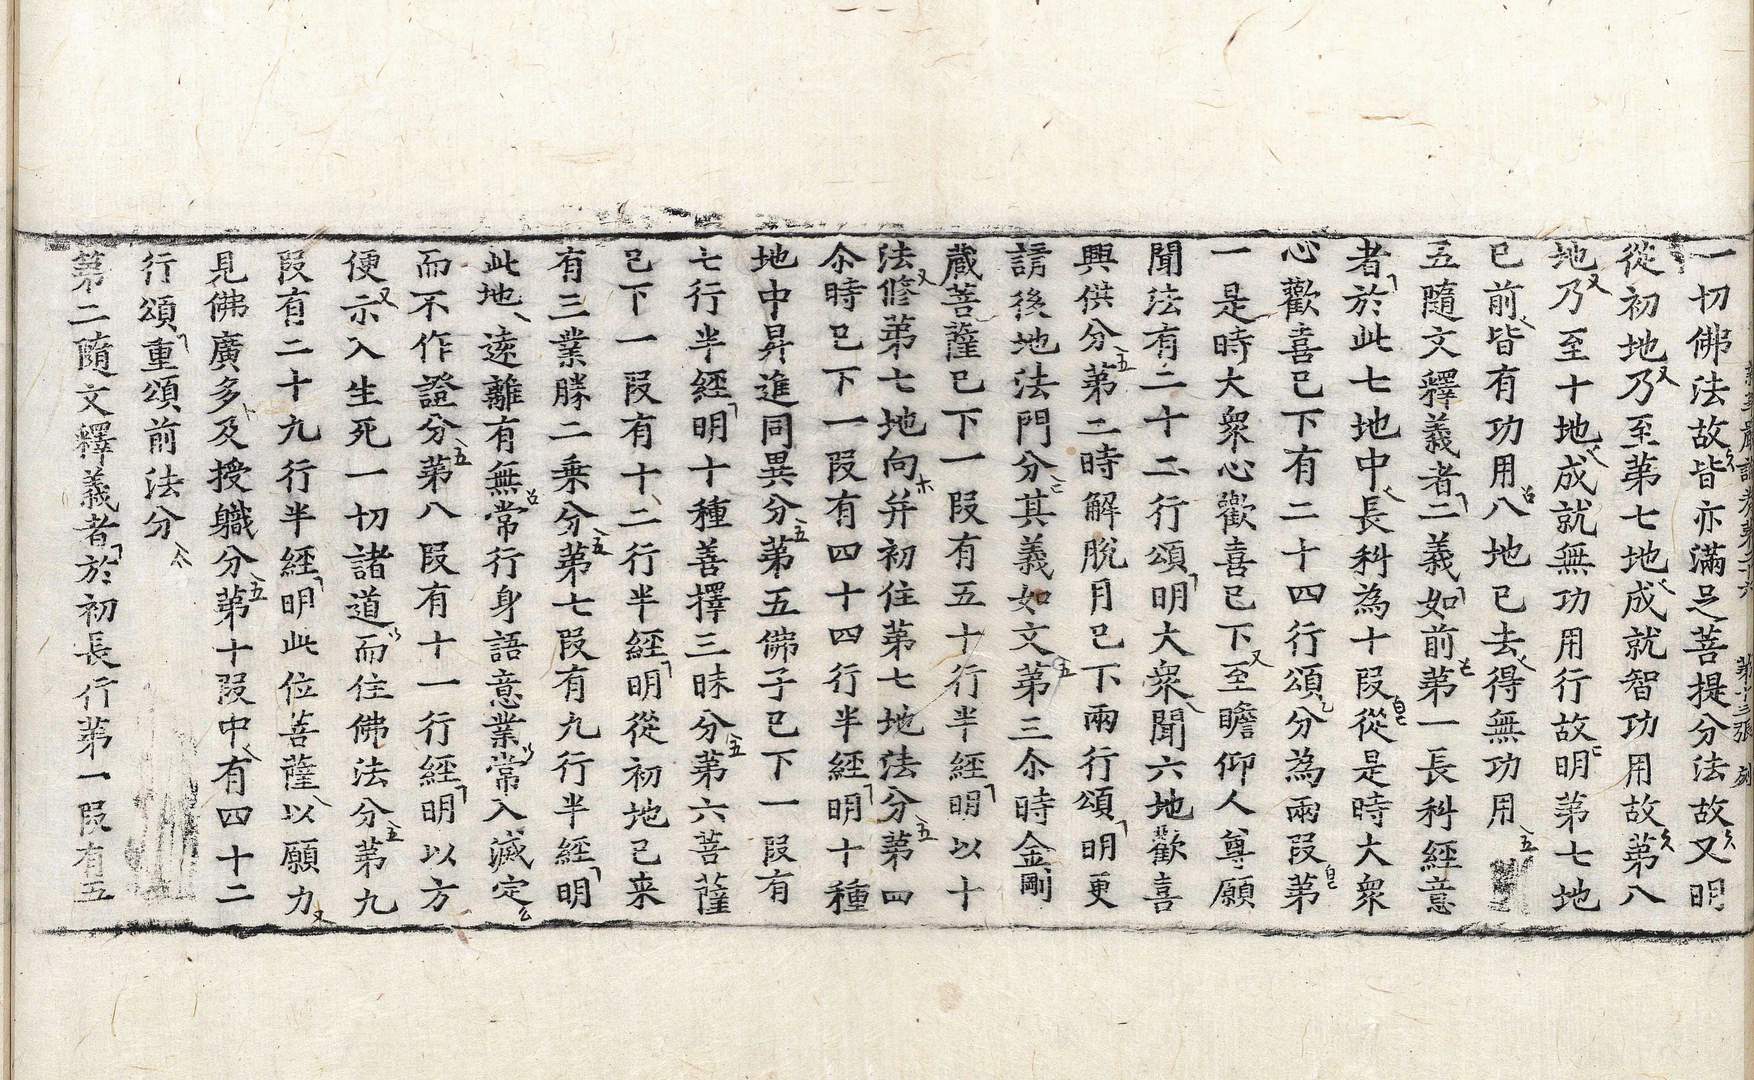 一切佛法故皆亦滿足菩提分法故又明
從初地乃至第七地成就智功用故第八
地乃至十地成就無功用行故明第七地
已前皆有功用八地已去得無功用
五隨文釋義者二義如前第一長科經意
者於此七地中長科為十段從是時大衆
心歡喜已下有二十四行頌分為兩段第
一是時大衆心歡喜已下至瞻仰人尊願
聞法有二十二行頌明大衆聞六地歡喜
興供分第二時解脫月已下兩行頌明更
請後地法門分其義如文第三尒時金剛
蔵菩薩已下一段有五十行半經明以十
法修第七地向并初住第七地法分第四
尒時已下一段有四十四行半經明十種
地中昇進同異分第五佛子已下一段有
七行半經明十種善擇三昧分第六菩薩
已下一段有十二行半經明從初地已来
有三業勝二乗分第七段有九行半經明
此地遠離有無常行身語意業常入滅定
而不作證分第八段有十一行經明以方
便示入生死一切諸道而住佛法分第九
段有二十九行半經明此位菩薩以願力
見佛廣多及授職分第十段中有四十二
行頌重頌前法分
第二隨文釋義者於初長行第一段有五